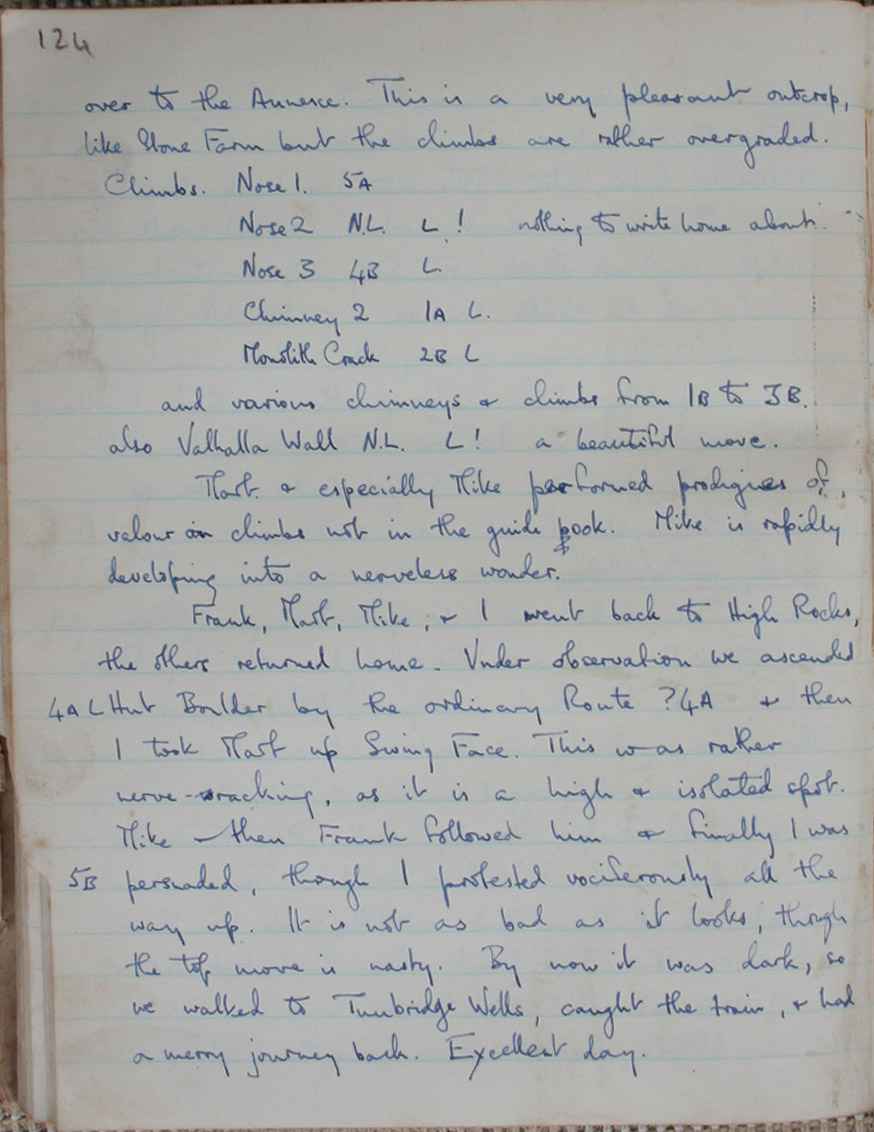 124
over to the Annexe. This is a very pleasant outcrop,
like Stone Farm but the climbs are rather overgraded.
Climbs. Nose 1. 5A
Nose 2 N.L. L! nothing to write home about.
Nose 3 4B L.
Chimney 2 1A L.
Monolith Crack 2B L
and various chimneys & climbs from 1B to 3B.
also Valhalla Wall N.L. L! a beautiful move.
Mart. & especially Mike performed prodigies of
valour on climbs not in the guide book. Mike is rapidly
developing into a nerveless wonder.
Frank, Mart, Mike, & I went back to High Rocks,
the others returned home. Under observation we ascended
4A L Hut Boulder by the ordinary Route ?4A & then
I took Mart up Swing Face. This was rather
nerve-wracking, as it is a high & isolated spot.
Mike then Frank followed him & finally I was
5B persuaded, though I protested vociferously all the
way up. It is not as bad as it looks, though
the top move is nasty. By now it was dark, so
we walked to Tunbridge Wells, caught the train, & had
a merry journey back. Excellent day.